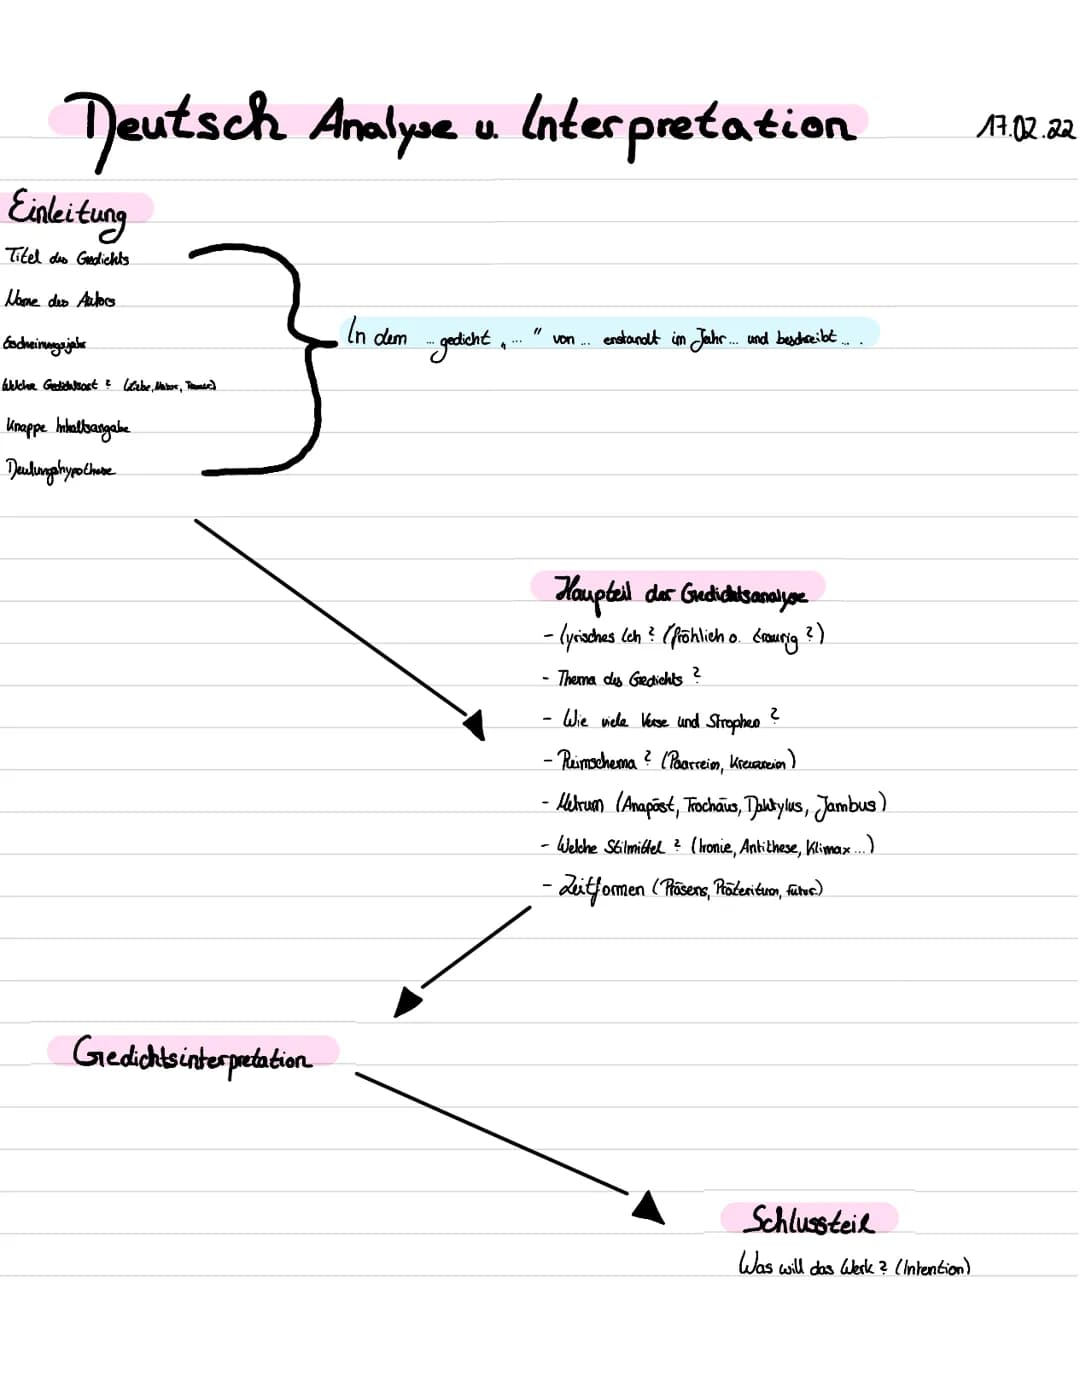 Deutsch Analyse u. Interpretation
17.02.22
Einleitung
Titel des Gedichts
Name des Autors
Erscheinungsjahr
Welche Gedichtsart? (Liebe, Natur, Trauer)
Knappe Inhaltsangabe
Deutungshypothese
In dem ... gedicht „ ... " von ... enstandt im Jahr ... und beschreibt ... .
Haupteil der Gedichtsanalyse
- lyrisches Ich? (fröhlich o. traurig?)
- Thema des Gedichts?
- Wie viele Verse und Strophen?
- Reimschema? (Paarreim, Kreuzreim)
- Metrum (Anapäst, Trochäus, Daktylus, Jambus)
- Welche Stilmittel? (Ironie, Antithese, Klimax ...)
- Zeitformen (Präsens, Präteritum, futur)
Gedichtsinterpretation
Schlussteil
Was will das Werk? (Intention)